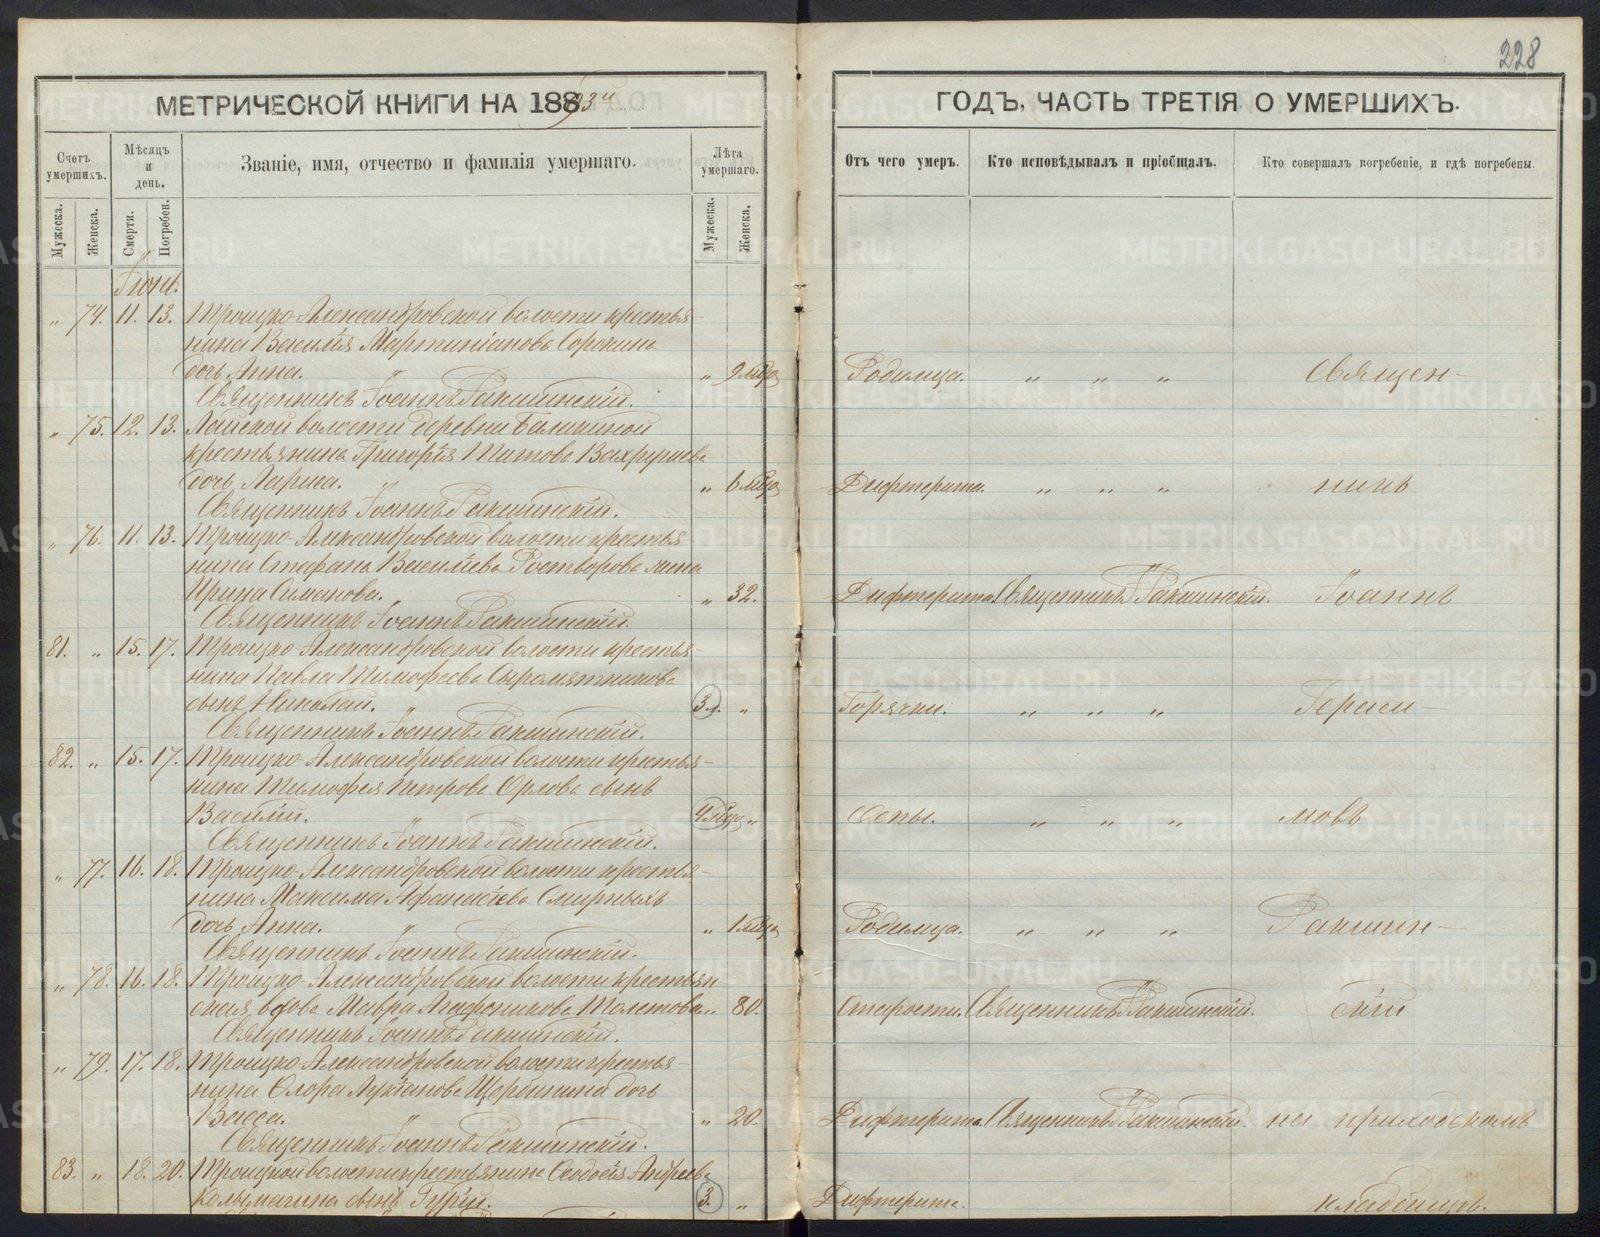 228
МЕТРИЧЕСКОЙ КНИГИ НА 1893
ГОДЪ, ЧАСТЬ ТРЕТІЯ О УМЕРШИХЪ.
Счетъ умершихъ.
Мѣсяцъ и день.
Званіе, имя, отчество и фамилія умершаго.
Лѣта умершаго.
Отъ чего умеръ.
Кто исповѣдывалъ и пріобщалъ.
Кто совершалъ погребеніе, и гдѣ погребены.
Мужеска. Женска. Смерти. Погребен. Мужеска. Женска.
Іюнь.
„ 74. 11. 13. Троицко-Александровской волости крестья-
нина Василія Мартиніанова Сорокина
дочь Анна. „ 9 мѣс. Родимца. „ „ „ Священ-
Священникъ Іоаннъ Ракшинскій.
„ 75. 12. 13. Лайской волости деревни Балакиной
крестьянина Григорія Титова Вахрушева
дочь Лариса. „ 6 мѣс. Дифтерита. „ „ „ никъ
Священникъ Іоаннъ Ракшинскій.
„ 76. 11. 13. Троицко-Александровской волости крестья
нина Стефана Василіева Растворова жена
Ирина Симанова. „ 32. Дифтерита. Священникъ Ракшинскій. Іоаннъ
Священникъ Іоаннъ Ракшинскій.
81. „ 15. 17. Троицко-Александровской волости крестья-
нина Павла Тимофеева Сыромятникова
сынъ Николай. 3 г. „ Горячки. „ „ „ Гераси-
Священникъ Іоаннъ Ракшинскій.
82. „ 15. 17. Троицко-Александровской волости крестья-
нина Тимофея Петрова Орлова сынъ
Василій. 4 мѣс. „ Оспы. „ „ „ мовъ
Священникъ Іоаннъ Ракшинскій.
„ 77. 16. 18. Троицко-Александровской волости крестья-
нина Максима Афанасіева Смирныхъ
дочь Анна. „ 1 мѣс. Родимца. „ „ „ Ракшин-
Священникъ Іоаннъ Ракшинскій.
„ 78. 16. 18. Троицко-Александровской волости крестьян
ская вдова Мавра Агафоникова Толстова „ 80. Старости. Священникъ Ракшинскій. скій
Священникъ Іоаннъ Ракшинскій.
„ 79. 17. 18. Троицко-Александровской волости крестья-
нина Флора Лукіанова Щербинина дочь
Васса. „ 20. Дифтерита. Священникъ Ракшинскій. на приходскомъ
Священникъ Іоаннъ Ракшинскій.
83. „ 18. 20. Троицкой волости крестьянина Феодосія Андреева
Колымагина сынъ Гурій. 3. „ Дифтерита. кладбищѣ.
METRIKI.GASO-URAL.RU